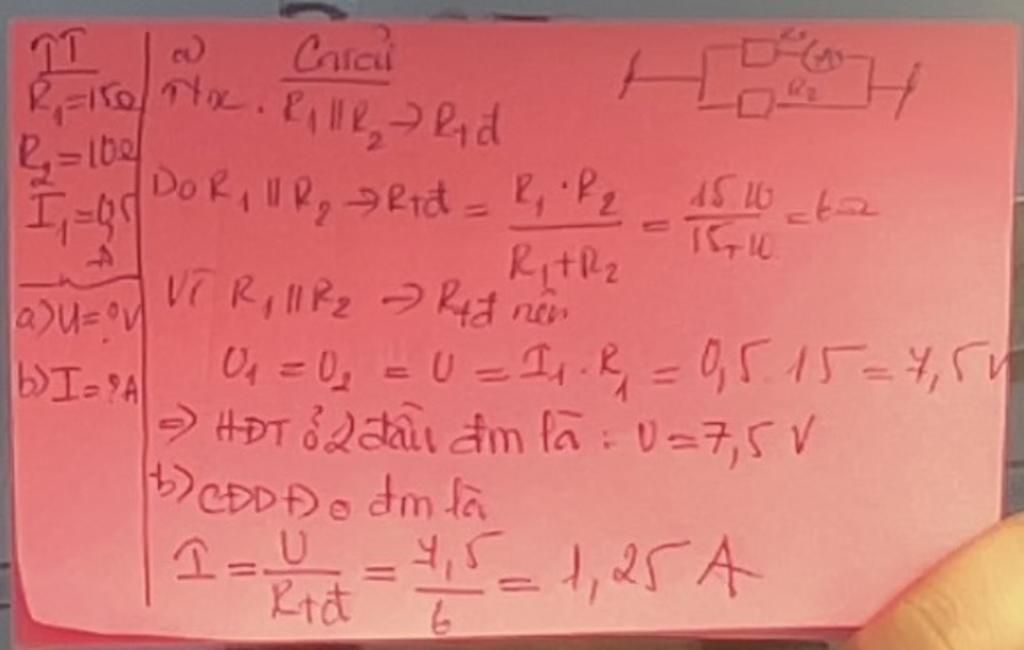 TT
R₁=15Ω
R₂=10Ω
I₁=0,5
A
a) U=?V
b) I=?A
a) Giải
R₁//R₂ → Rtđ
Do R₁//R₂ → Rtđ = R₁.R₂ / R₁+R₂ = 15.10 / 15+10 = 6Ω
Vì R₁//R₂ → Rtđ nên
U₁ = U₂ = U = I₁.R₁ = 0,5.15 = 7,5V
⇒ HĐT ở 2 đầu đm là : U=7,5 V
b) CĐDĐ ở đm là
I = U / Rtđ = 7,5 / 6 = 1,25 A
A
R₂